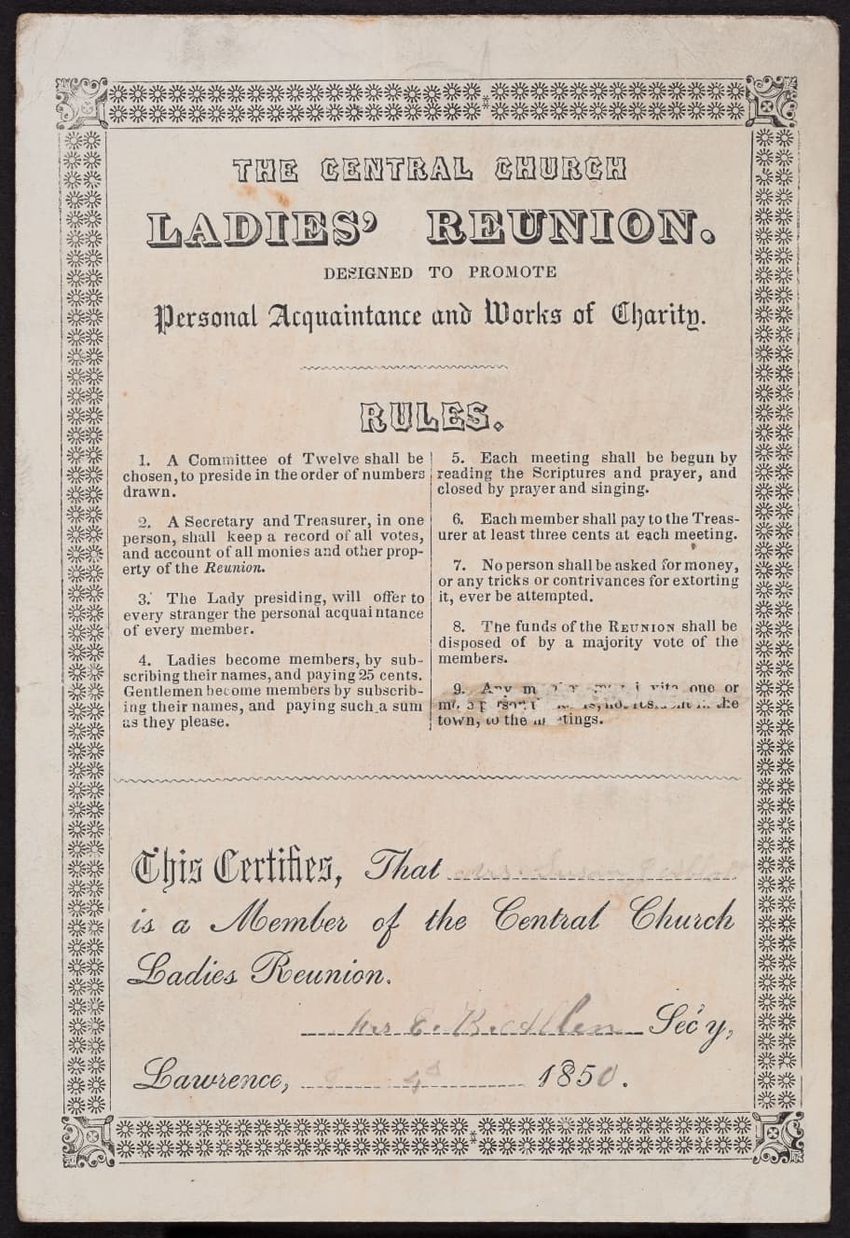 THE CENTRAL CHURCH
LADIES' REUNION.
DESIGNED TO PROMOTE
Personal Acquaintance and Works of Charity.
RULES.
1. A Committee of Twelve shall be
chosen, to preside in the order of numbers
drawn.
2. A Secretary and Treasurer, in one
person, shall keep a record of all votes,
and account of all monies and other prop-
erty of the Reunion.
3. The Lady presiding, will offer to
every stranger the personal acquaintance
of every member.
4. Ladies become members, by sub-
scribing their names, and paying 25 cents.
Gentlemen become members by subscrib-
ing their names, and paying such a sum
as they please.
5. Each meeting shall be begun by
reading the Scriptures and prayer, and
closed by prayer and singing.
6. Each member shall pay to the Treas-
urer at least three cents at each meeting.
7. No person shall be asked for money,
or any tricks or contrivances for extorting
it, ever be attempted.
8. The funds of the REUNION shall be
disposed of by a majority vote of the
members.
9. Any one or
the
town, to the
This Certifies, That Mrs Susan
is a Member of the Central Church
Ladies Reunion.
Mrs E. B. Allen Sec'y,
Lawrence, 1850.